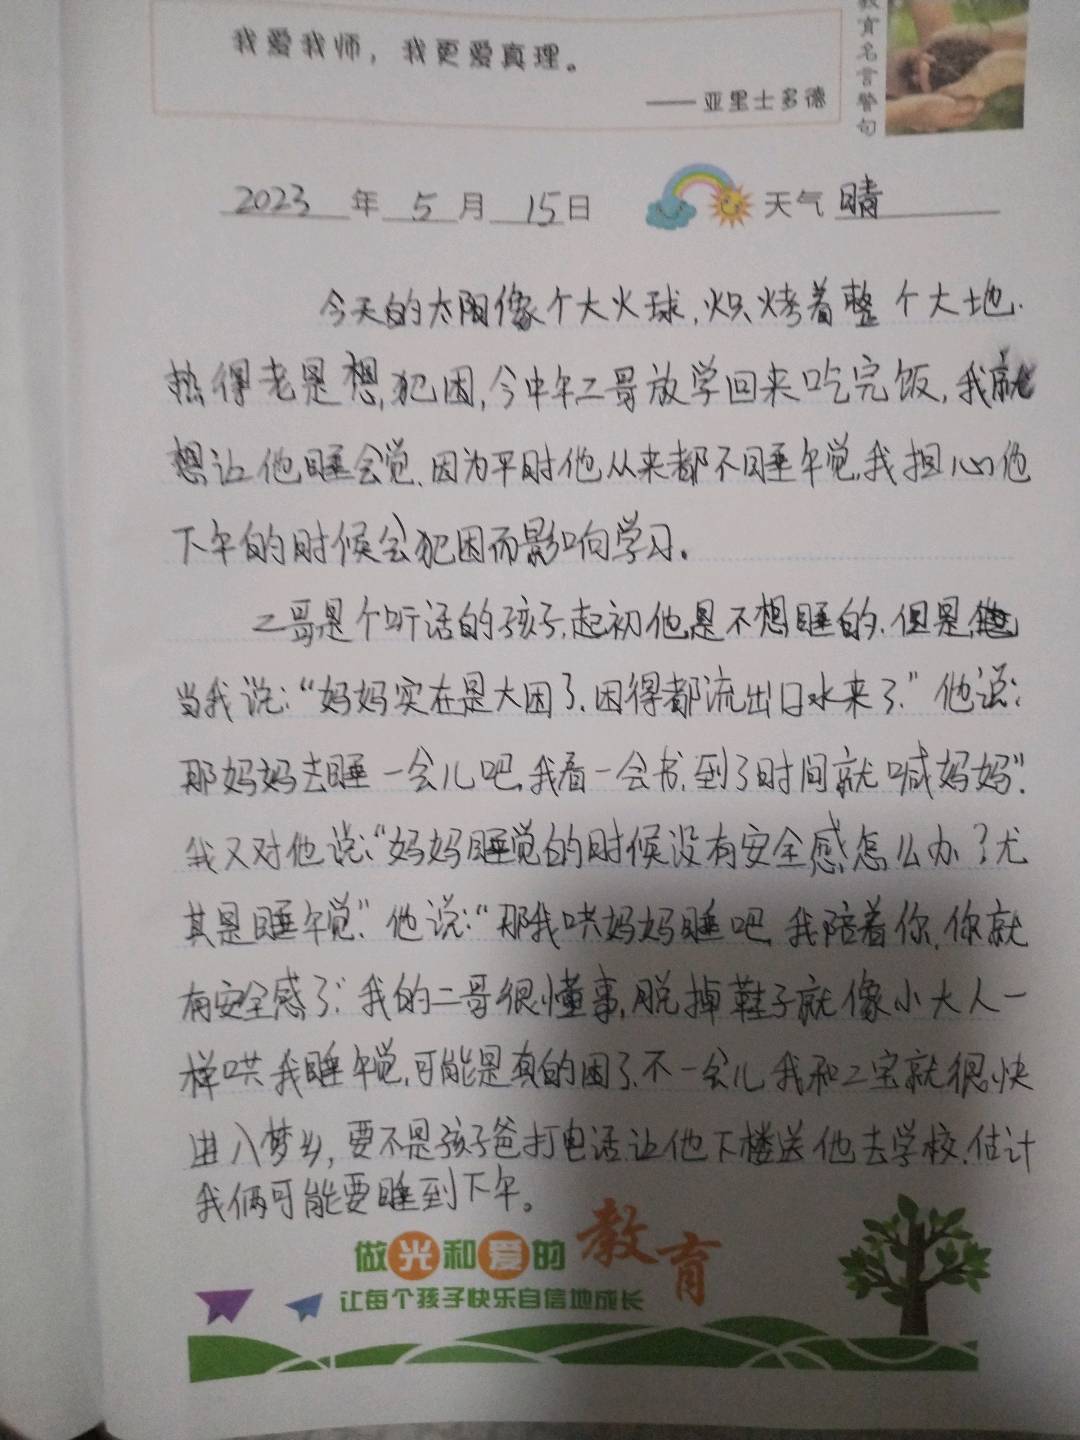 我爱我师，我更爱真理。
——亚里士多德
教育名言警句
2023年5月15日 天气 晴
今天的太阳像个大火球,炽烤着整个大地.
热得老是想犯困,今中午二哥放学回来吃完饭,我就
想让他睡会觉、因为平时他从来都不睡午觉,我担心他
下午的时候会犯困而影响学习。
二哥是个听话的孩子,起初他是不想睡的.但是
当我说:“妈妈实在是太困了.困得都流出口水来了.”他说:
那妈妈去睡一会儿吧,我看一会书,到了时间就喊妈妈”.
我又对他说:“妈妈睡觉的时候没有安全感怎么办?尤
其是睡午觉.”他说:“那我哄妈妈睡吧,我陪着你,你就
有安全感了.”我的二哥很懂事,脱掉鞋子就像小大人一
样哄我睡午觉,可能是真的困了,不一会儿我和二宝就很快
进入梦乡,要不是孩子爸打电话让他下楼送他去学校.估计
我俩可能要睡到下午。
做光和爱的教育
让每个孩子快乐自信地成长